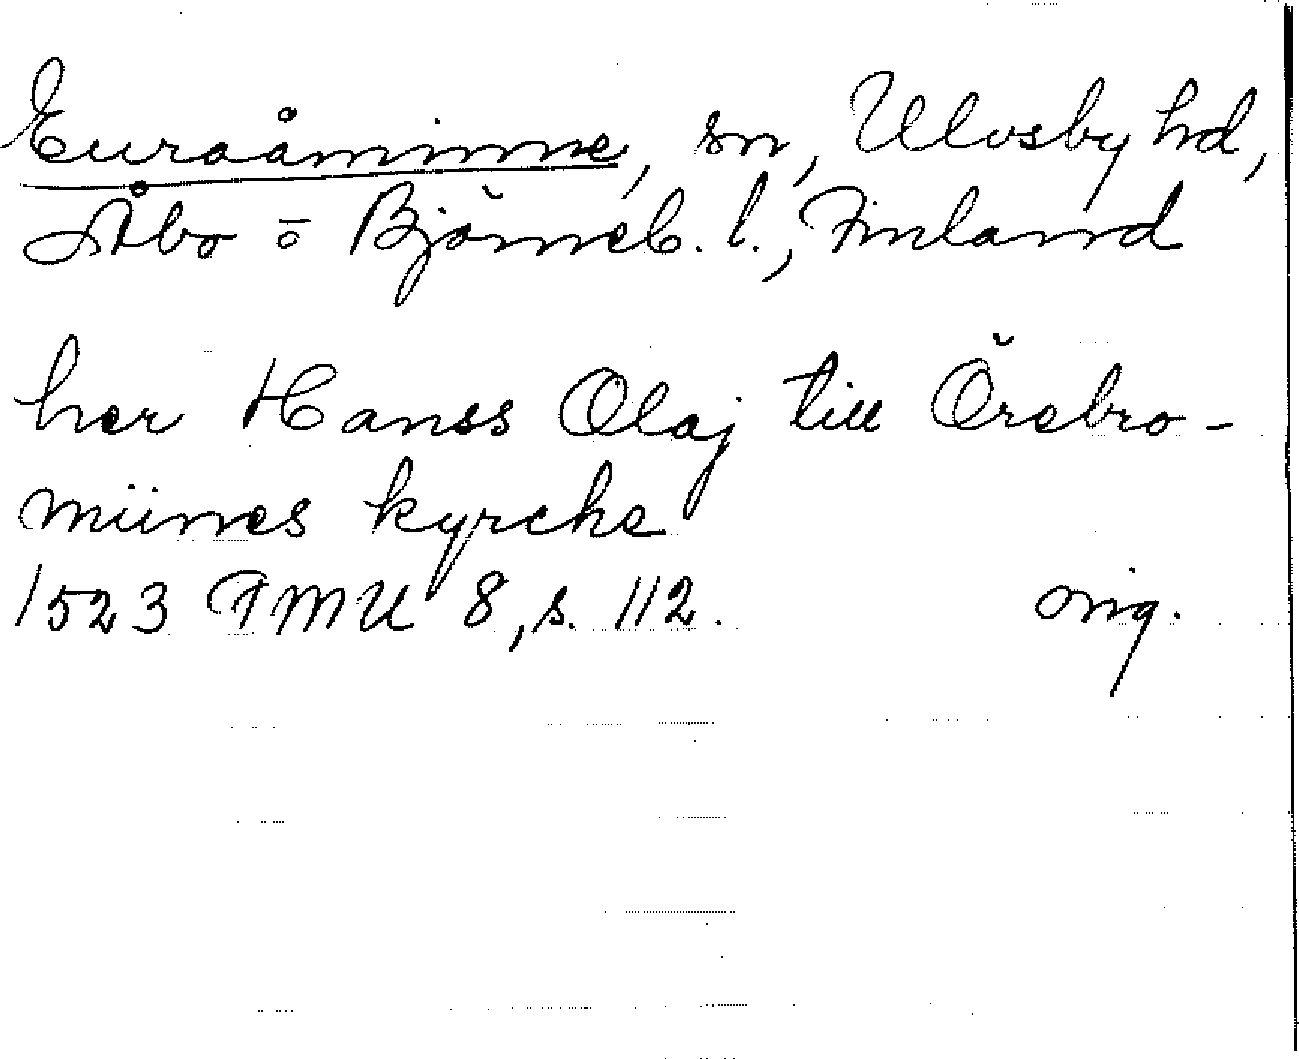 Euraåminne, sn, Ulvsby hd,
Åbo o Björneb. l., Finland
her Hanss Olaj till Örebro-
miinnes kyrche
1523 FMU 8, s. 112. orig.